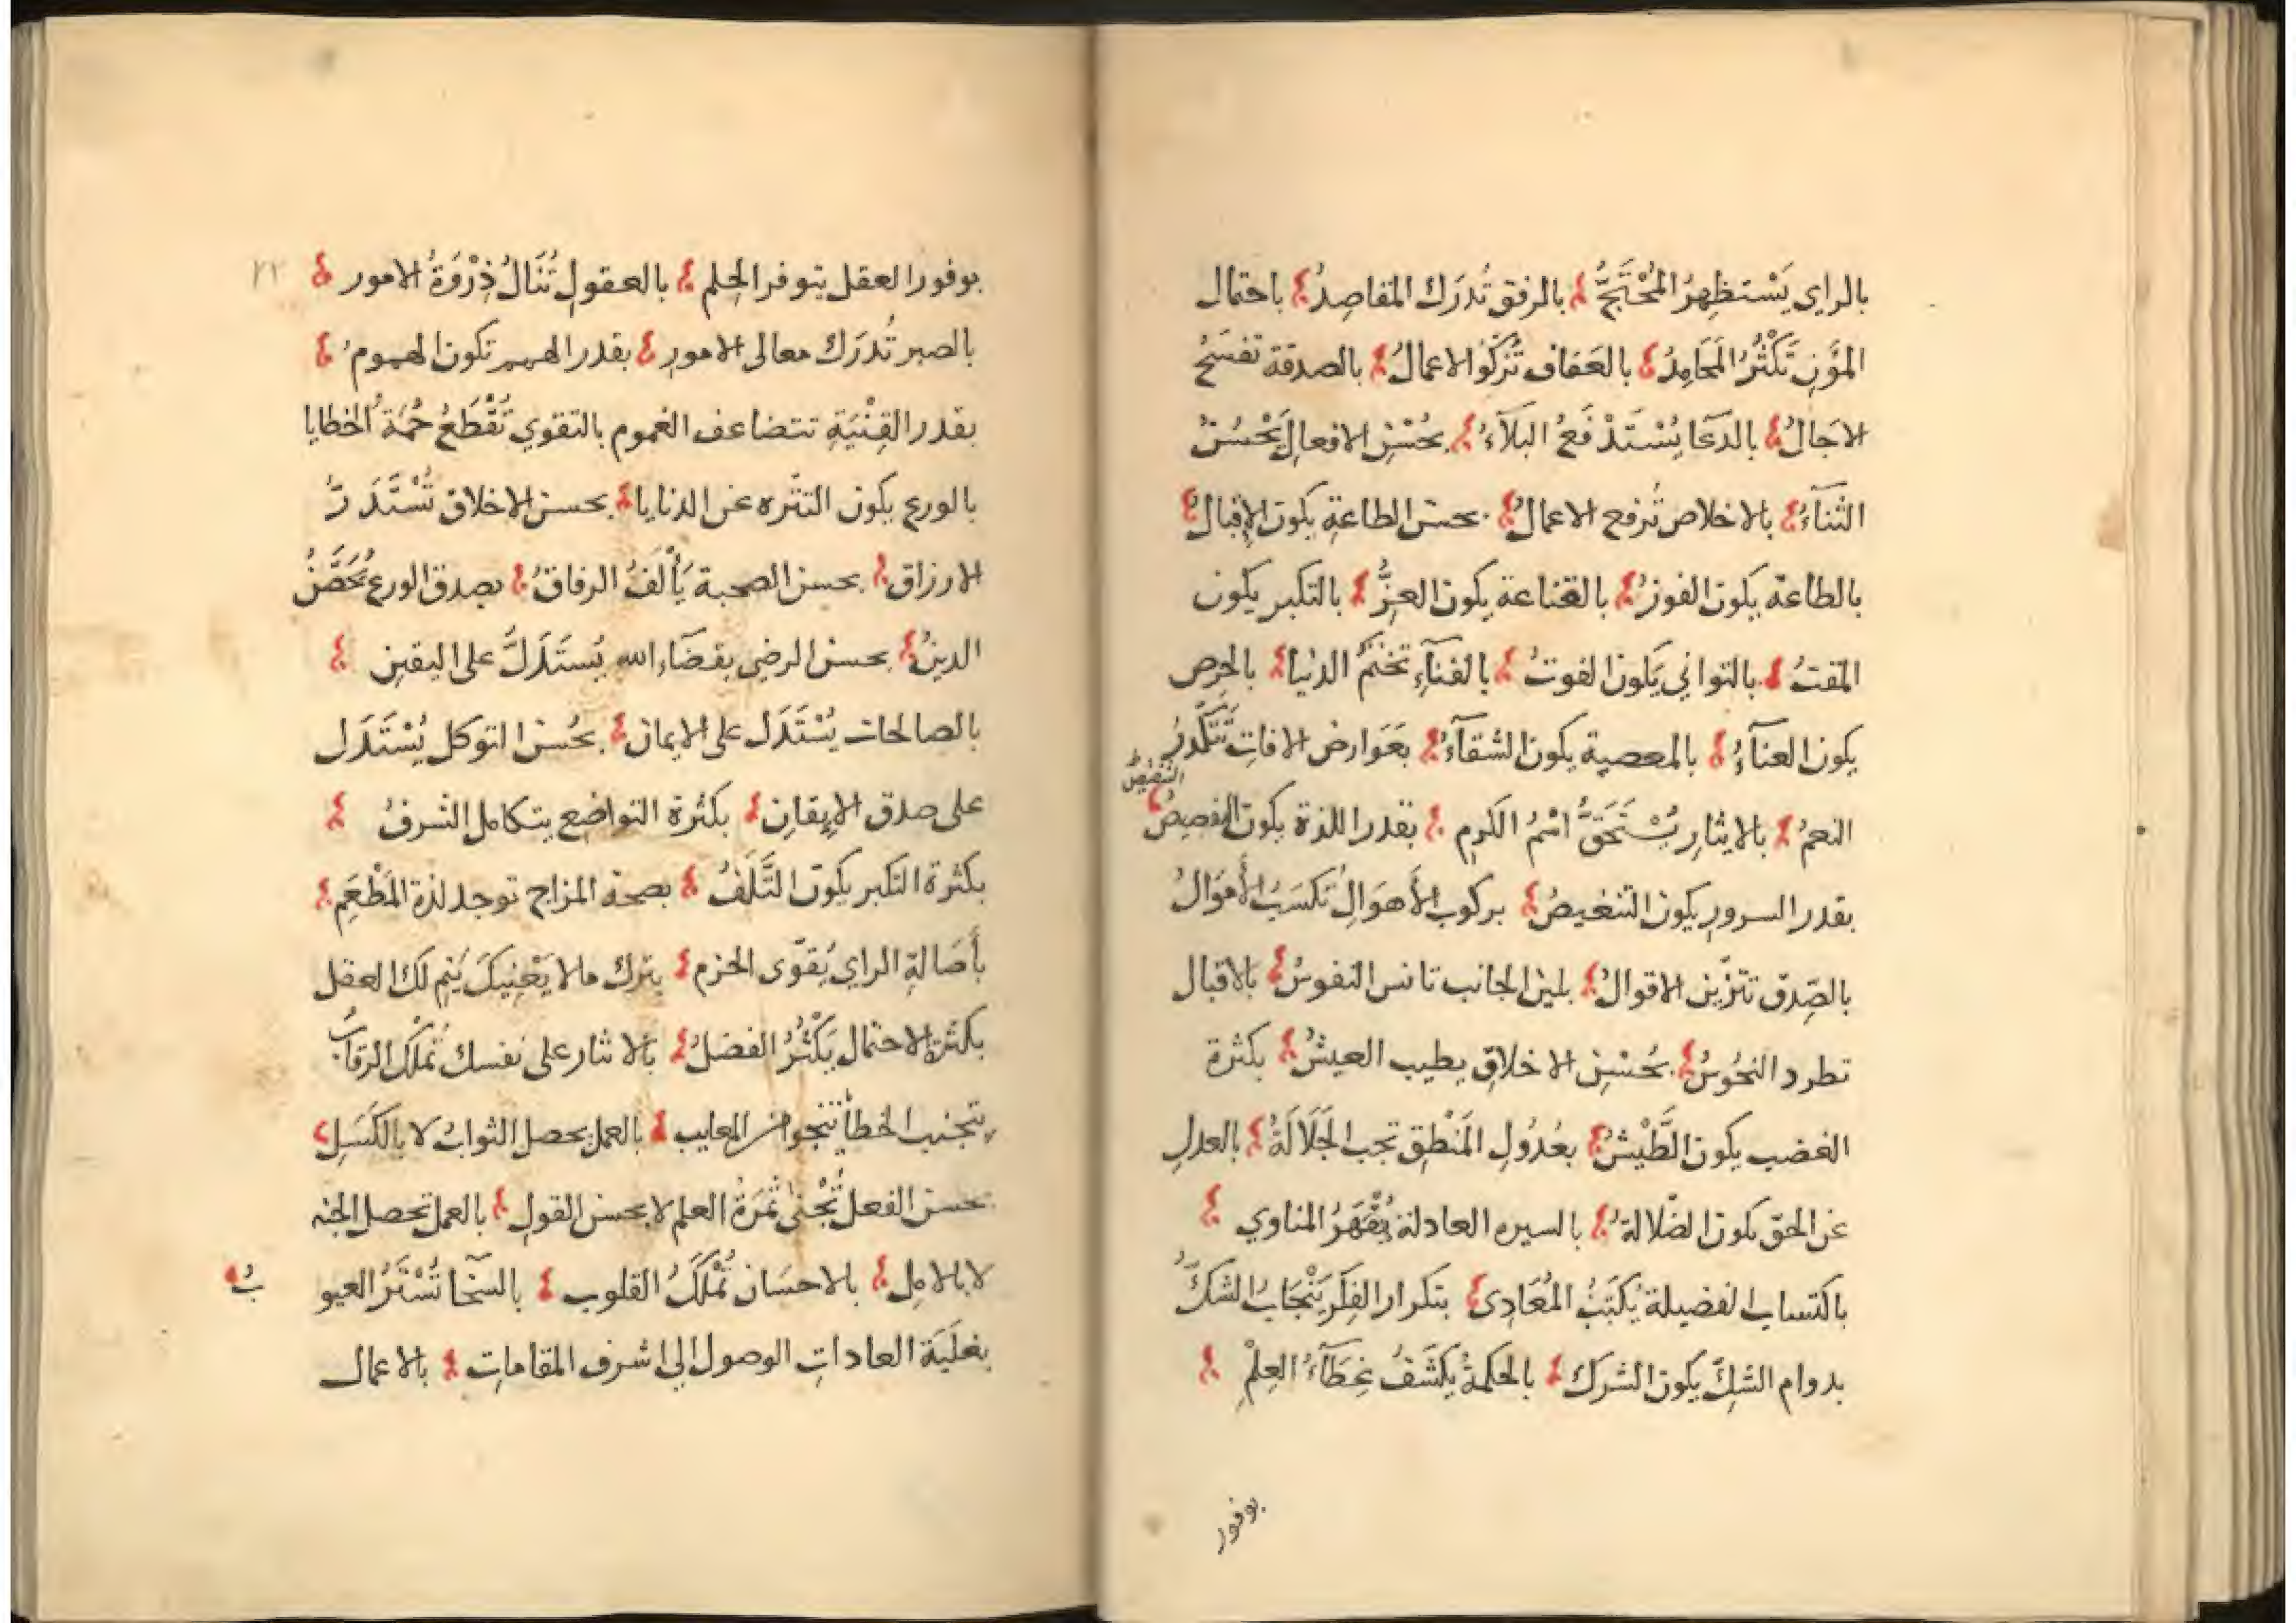 بالراي يَسْتظهِرُ المُحْتَجُّ بالرفق تُدرَك المقاصِدُ باحتمال
المؤَنِ تَكْثُرُ المَحَامِدُ بالعَفاف تَزكُوا الاعمالُ بالصدقة تفسَحُ
الاجَالُ بالدعَا يُسْتَدْفَعُ البَلَآءُ بحُسْنِ الافعالِ يَحْسُنُ
الثنآءُ بالاخلاص تُرفع الاعمالُ بحسن الطاعةِ يكون الإقبالُ
بالطاعة يكون الفوزُ بالقناعة يكون العِزُّ بالتكبر يكون
المقتُ بالتواني يَكون الفوتُ بالفنآءِ تختمُ الدنيا بالحِرص
يكون العنآءُ بالمعصية يكون الشقآءُ بعَوارض الافاتِ تَتَكَدرُ
النعمُ بالايثارِ يُسْتَحَقُّ اسْمُ الكَرمِ بقدر اللذة يكون
التغيصُ
بقدر السرورِ يكون التنغيصُ بركوب الأهوَالِ تكسَبُ الأموَالُ
بالصِّدق تتزّين الاقوالُ بلين الجانب تانس النفوسُ بالاقبال
تطرد النحُوسُ بحُسْنِ الاخلاقِ يطيب العيشُ بكثرة
الغضب يكون الطَّيْشُ بعُدُولِ المَنْطِق تجب الجَلَالَةُ بالعدلِ
عن الحق يكون الضّلالة بالسيره العادلة يُقْهَرُ المناوي
باكتساب الفضيلة يُكبَتُ المُعَادِى بتكرار الفِكَر يَنْجَابُ الشكُّ
بدوام الشكِّ يكون الشرك بالحكمةُ يكشَفُ غِطَآءُ العِلْمِ
بوفور
٢٢
بوفور العقل يتوفر الحِلم بالعقولِ تُنَالُ ذِرْوَةُ الامور
بالصبر تُدرَك معالى الامورِ بقدر الهمم تكون الهمومُ
بقدر القِنْيَةِ تتضاعف الغموم بالتقوي تُقْطَعُ حُمَةُ الخطايا
بالورع يكون التنزه عن الدنايا بحسن الاخلاق تُسْتَدَرّ
الارزاق بحسن الصحبة يَألَفُ الرفاقُ بصدق الورع يُحَصَّنُ
الدينُ بحسن الرضي بقضَآءِ الله يُستَدَلُّ على اليقين
بالصالحات يُسْتَدَل على الايمان بحُسن اتوكل يُسْتَدَل
على صدق الإيقانِ بكثرة التواضع يتكامل الشرفُ
بكثرة التكبر يكون التَّلَفُ بصحة المزاج توجد لذة المَطْعَمِ
بأصَالةِ الراي يُقوّى الحزم بترك مالا يَعْنِيكَ يَتِم لك العقل
بكثرة الاحتمال يَكْثُرُ الفضلُ بالاثار على نفسك تملك الرقابُ
بتجنب الخطأ تنجوا من المعايب بالعمل يحصل الثوابُ لا بالكَسَلِ
بحسن الفعل تُجْنى ثمَرَةُ العلم لا بحسن القولِ بالعمل تحصل الجنه
لا بالامِل بالاحسَان تُمْلَكُ القلوب بالسخآ تُسْتَرُ العيو
بُ
بغلَبَة العاداتِ الوصول الي اشرف المقاماتِ بالاعمال